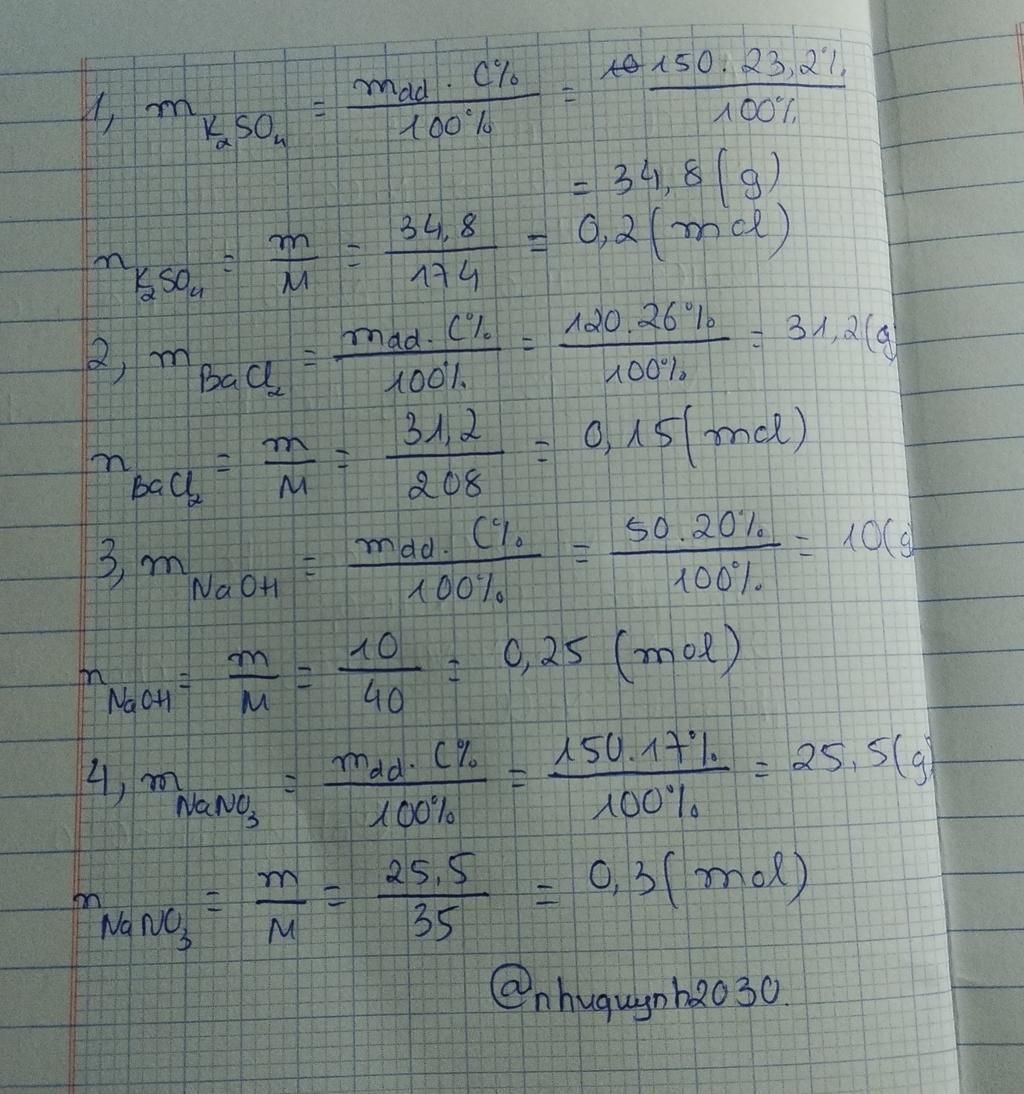 1, m K₂SO₄ = mdd. C% / 100% = 150. 23,2% / 100%
= 34,8 (g)
n K₂SO₄ = m / M = 34,8 / 174 = 0,2 (mol)
2, m BaCl₂ = mdd. C% / 100% = 120.26% / 100% = 31,2(g
n BaCl₂ = m / M = 31,2 / 208 = 0,15 (mol)
3, m NaOH = mdd. C% / 100% = 50.20% / 100% = 10(g
n NaOH = m / M = 10 / 40 = 0,25 (mol)
4, m NaNO₃ = mdd. C% / 100% = 150.17% / 100% = 25,5(g)
n NaNO₃ = m / M = 25,5 / 35 = 0,3 (mol)
@nhuquynh2030.